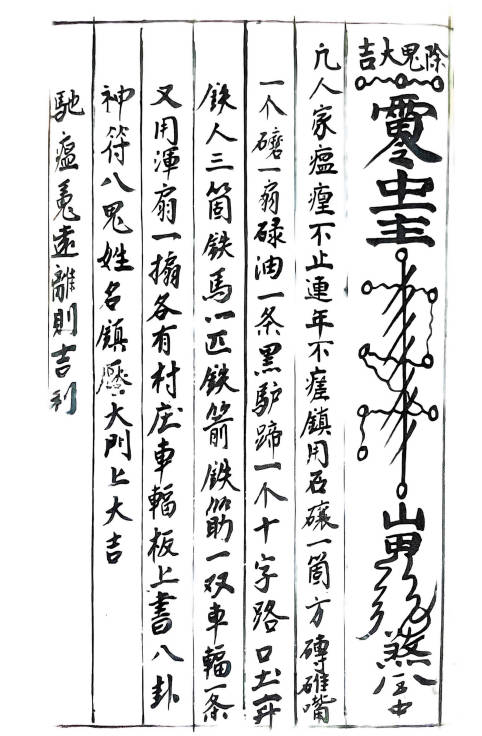 除鬼大吉
凢人家瘟不止連年不瘥鎮用石一箇方磚碓嘴
一个磨一扇碌油一条黑驴蹄一个十字路口土一升
鉄人三箇鉄馬八匹鉄箭鉄筯一双車輻一条
又用渾扇一搧各有村庄車輻板上書八卦
神符八鬼姓名鎮壓大門上大吉
馳瘟遠離則吉利